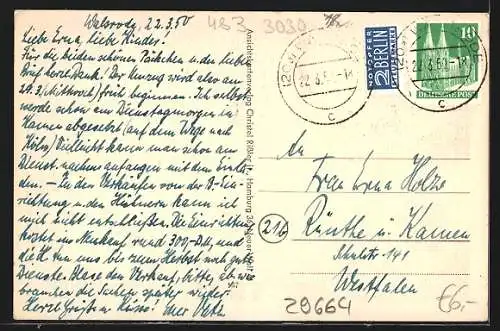 Walsrode, 22.3.50
Liebe Erna, liebe Kinder!
Für die beiden schönen Päckchen u. den lieben
Brief herzl. Dank! Der Umzug wird also am
29.3. (Mittwoch) früh beginnen. Ich selbst
werde schon am Dienstagmorgen in
Kamen abgesetzt (auf dem Wege nach
Köln). Vielleicht kann man schon am
Dienst. nachm. anfangen mit dem Einla-
den. – In den Verkäufen von der B-Ein-
richtung u. den Hühnern kann ich
mich nicht entschließen. Die Einrichten
kostet im Neukauf rund 500,- DM, und
die H. tun uns bis zum Herbst noch gute
Dienste. Blase den Verkauf, bitte, ab, wir
brauchen die Sachen später wieder.
Herzl. Grüße u. Küsse: Euer Vati
483
3030
Ansichtskartenverlag Christel Hamburg
NOTOPFER
2 BERLIN
STEUERMARKE
10
DEUTSCHE POST
22.3.50
c
22.3.50
c
An
Frau Erna Holze
Rünthe ü. Kamen
Schulstr. 141
Westfalen
(21b)
29664
€6,-